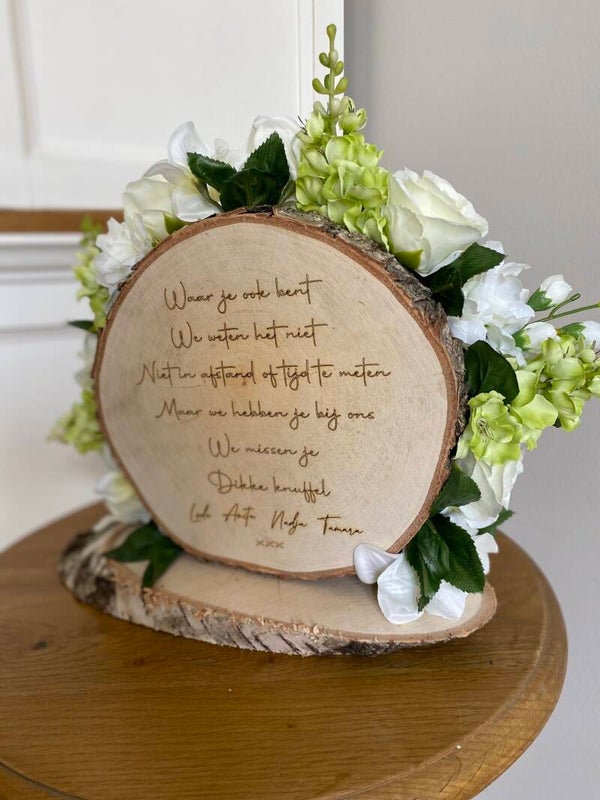 Waar je ook bent
We weten het niet
Niet in afstand of tijd te meten
Maar we hebben je bij ons
We missen je
Dikke knuffel
Lode Anita Nadja Tamara
xxx